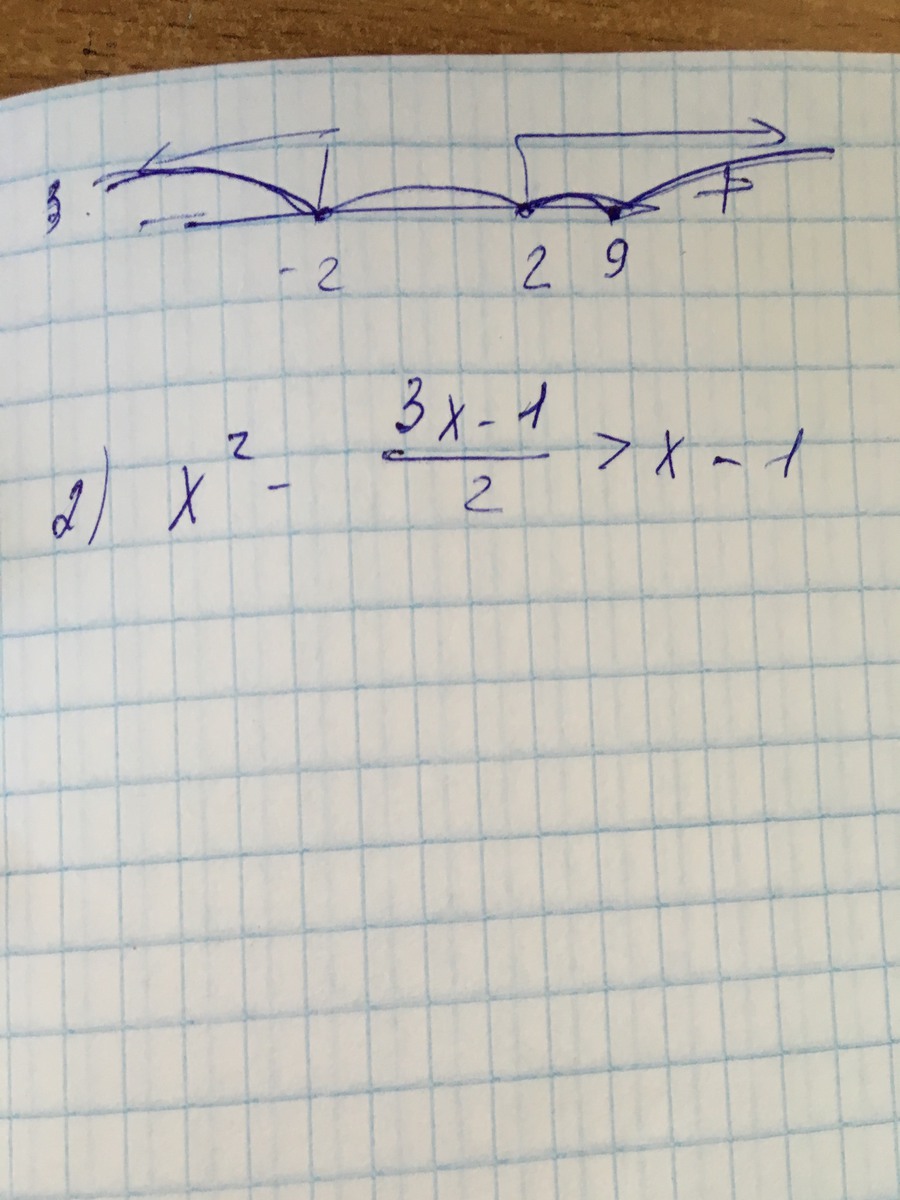 3.
+
-2 2 9
2) x² - (3x-1)/2 > x - 1